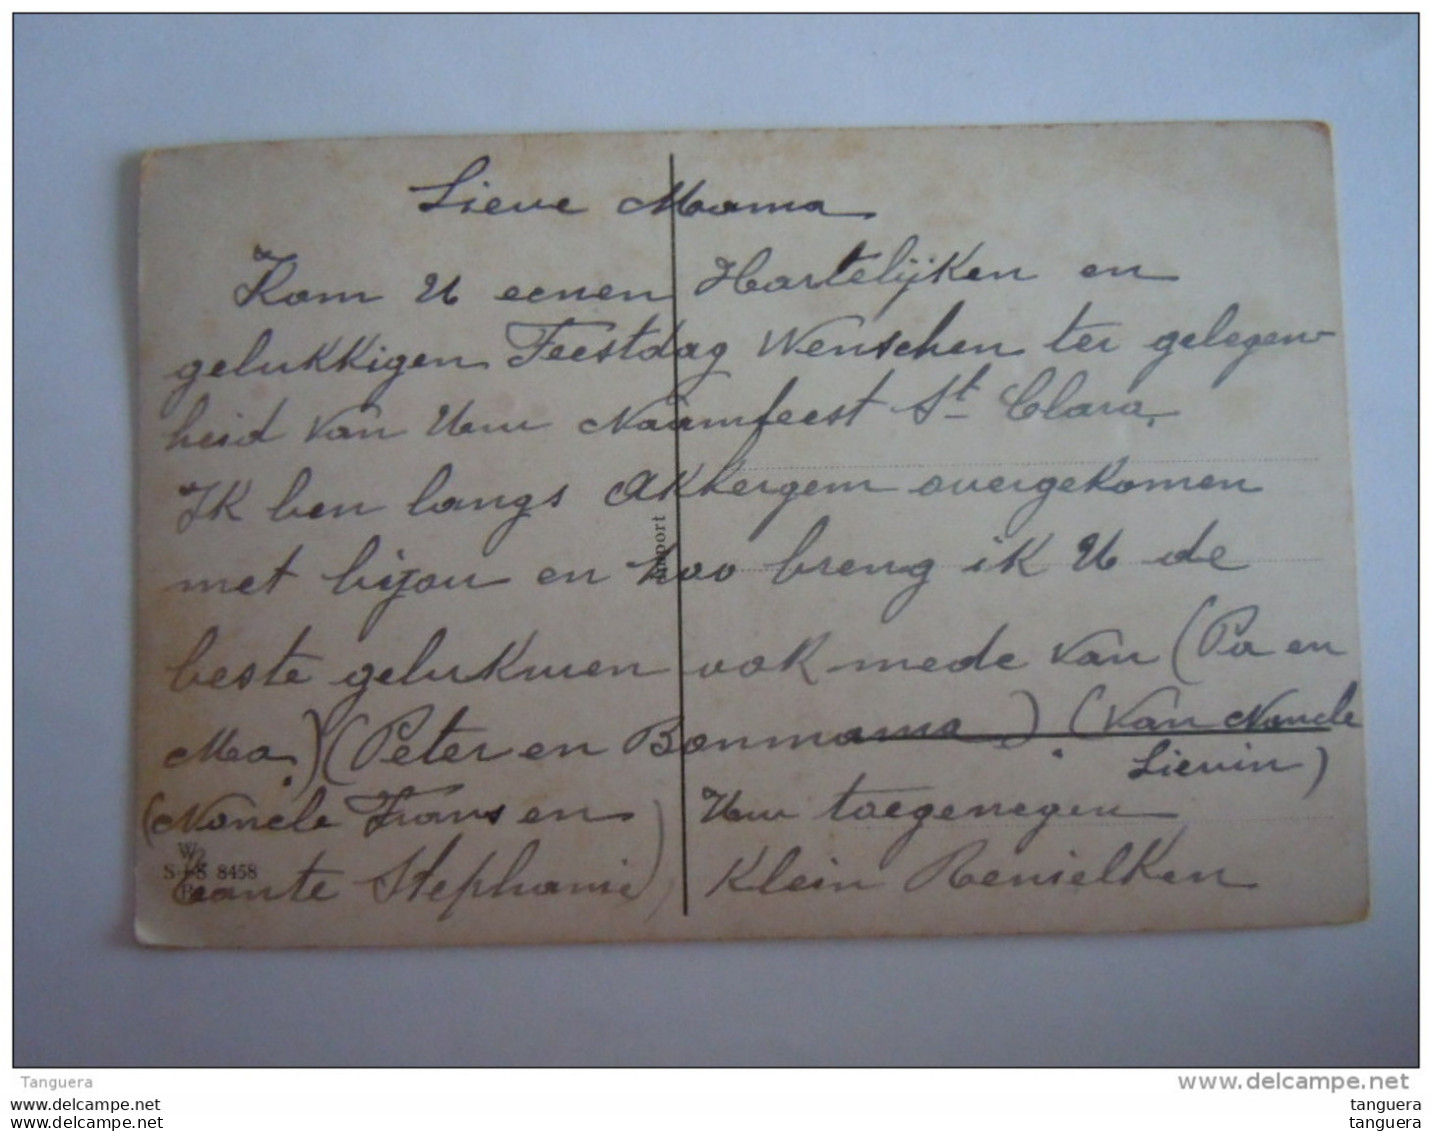 Lieve Moama
Kom U eenen Hartelijken en
gelukkigen Feestdag Wenschen ter gelegen-
heid van Uwe Naamfeest St Clara.
Ik ben langs Akkergem overgekomen
met bijou en zoo breng ik U de
import
beste gelukwen ook mede van (Pa en
Ma.) (Peter en Bonmama) (Van Noncle
Lievin)
(Noncle Frans en
tante Stephanie)
Uw toegenegen
Klein Renielken
W
S+S 8458
B
Tanguera
www.delcampe.net
tanguera
tanguera
tanguera
tanguera